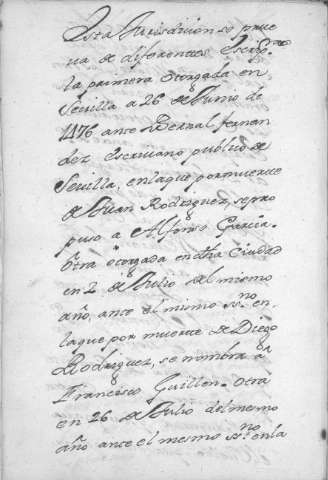 Esta Jurisdicion se prue
va de diferentes Escrip.ras
la primera otorgada en
Sevilla a 26 de Junio de
1476 ante Bernal fernan
dez escrivano publico de
Sevilla, enlaque pormuerte
de Juan Rodriguez, se pro
puso a Alfonso Garcia.
Otra otorgada en dha Ciudad
en 2 de Julio del mismo
año, ante el mimo ss.no en
laque por muerte de Diego
Rodriguez, se nombra a
Francisco Guillen. Otra
en 26 de Julio del memo
año ante el mesmo ss.no enla